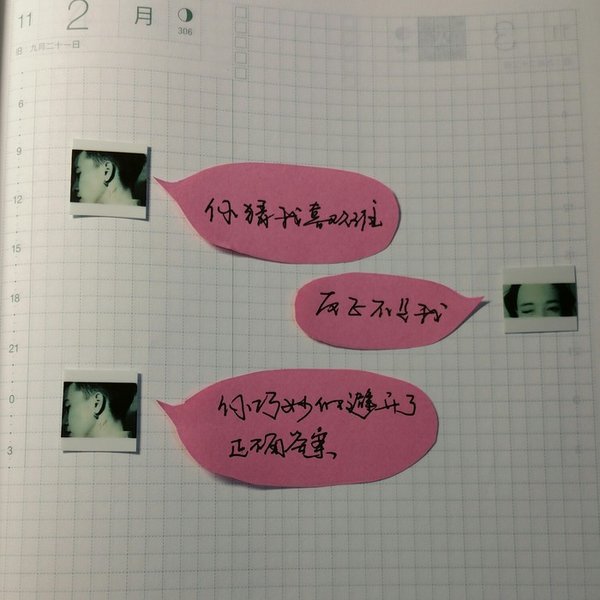 11 2 月
306
旧 九月二十一日
6
9
12
你猜我喜欢谁
15
反正不是我
18
21
0
你巧妙的避开了
正确答案
3